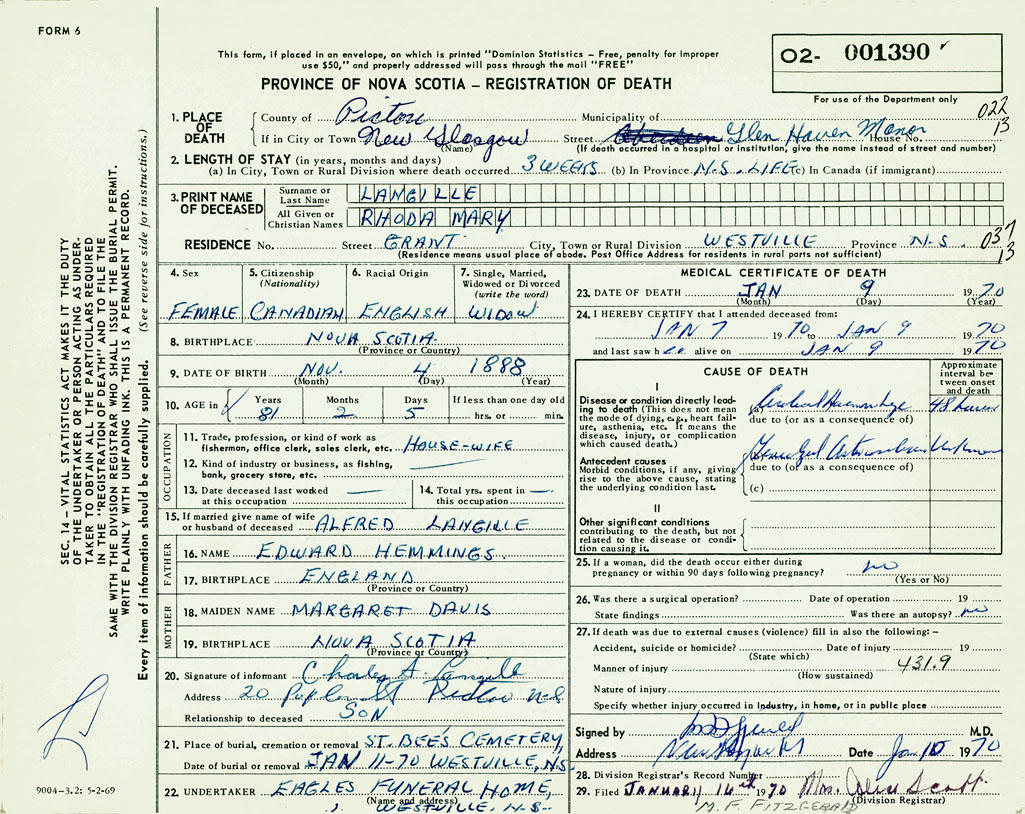 FORM 6
This form, if placed in an envelope, on which is printed "Dominion Statistics – Free, penalty for improper
use $50," and properly addressed will pass through the mail "FREE"
PROVINCE OF NOVA SCOTIA – REGISTRATION OF DEATH
O2- 001390
For use of the Department only
SEC. 14 – VITAL STATISTICS ACT MAKES IT THE DUTY
OF THE UNDERTAKER OR PERSON ACTING AS UNDER-
TAKER TO OBTAIN ALL THE PARTICULARS REQUIRED
IN THE "REGISTRATION OF DEATH" AND TO FILE THE
SAME WITH THE DIVISION REGISTRAR WHO SHALL ISSUE THE BURIAL PERMIT.
WRITE PLAINLY WITH UNFADING INK. THIS IS A PERMANENT RECORD.
Every item of information should be carefully supplied. (See reverse side for instructions.)
1. PLACE OF DEATH
County of Pictou Municipality of 022
13
If in City or Town New Glasgow Street Glen Haven Manor House No.
(Name) (If death occurred in a hospital or institution, give the name instead of street and number)
2. LENGTH OF STAY (in years, months and days)
(a) In City, Town or Rural Division where death occurred 3 WEEKS (b) In Province N.S. LIFE (c) In Canada (if immigrant)
3. PRINT NAME OF DECEASED
Surname or Last Name LANGILLE
All Given or Christian Names RHODA MARY
RESIDENCE No. Street GRANT City, Town or Rural Division WESTVILLE Province N.S. 037
13
(Residence means usual place of abode. Post Office Address for residents in rural parts not sufficient)
4. Sex FEMALE
5. Citizenship (Nationality) CANADIAN
6. Racial Origin ENGLISH
7. Single, Married, Widowed or Divorced (write the word) WIDOW
8. BIRTHPLACE NOVA SCOTIA
(Province or Country)
9. DATE OF BIRTH NOV. 4 1888
(Month) (Day) (Year)
10. AGE in Years 81 Months 2 Days 5 If less than one day old hrs. or min.
OCCUPATION
11. Trade, profession, or kind of work as
fisherman, office clerk, sales clerk, etc. HOUSE-WIFE
12. Kind of industry or business, as fishing,
bank, grocery store, etc.
13. Date deceased last worked
at this occupation
14. Total yrs. spent in
this occupation
15. If married give name of wife
or husband of deceased ALFRED LANGILLE
FATHER
16. NAME EDWARD HEMMINGS
17. BIRTHPLACE ENGLAND
(Province or Country)
MOTHER
18. MAIDEN NAME MARGARET DAVIS
19. BIRTHPLACE NOVA SCOTIA
(Province or Country)
20. Signature of informant Charles A. Langille
Address 20 Poplar St Pictou N.S
Relationship to deceased SON
21. Place of burial, cremation or removal ST. BEE'S CEMETERY,
Date of burial or removal JAN 11-70 WESTVILLE, N.S.
22. UNDERTAKER EAGLES FUNERAL HOME,
(Name and address) WESTVILLE, N.S.
9004-3.2: 5-2-69
MEDICAL CERTIFICATE OF DEATH
23. DATE OF DEATH JAN 9 1970
(Month) (Day) (Year)
24. I HEREBY CERTIFY that I attended deceased from:
JAN 7 1970 to JAN 9 1970
and last saw her alive on JAN 9 1970
CAUSE OF DEATH
Approximate interval between onset and death
I
Disease or condition directly lead-
ing to death (This does not mean
the mode of dying, e.g., heart fail-
ure, asthenia, etc. It means the
disease, injury, or complication
which caused death.)
(a) Cerebral Hemorrhage 48 hours
due to (or as a consequence of)
Antecedent causes
Morbid conditions, if any, giving
rise to the above cause, stating
the underlying condition last.
(b) Unknown
due to (or as a consequence of)
(c)
II
Other significant conditions
contributing to the death, but not
related to the disease or condi-
tion causing it.
25. If a woman, did the death occur either during
pregnancy or within 90 days following pregnancy? no
(Yes or No)
26. Was there a surgical operation? Date of operation 19
State findings Was there an autopsy? no
27. If death was due to external causes (violence) fill in also the following: –
Accident, suicide or homicide? Date of injury 19
(State which)
Manner of injury 431.9
(How sustained)
Nature of injury
Specify whether injury occurred in industry, in home, or in public place
Signed by M.D.
Address New Glasgow N.S Date Jan 10 1970
28. Division Registrar's Record Number
29. Filed JANUARY 14th 1970 Mrs. Scott
(Division Registrar)
M. F. FITZGERALD